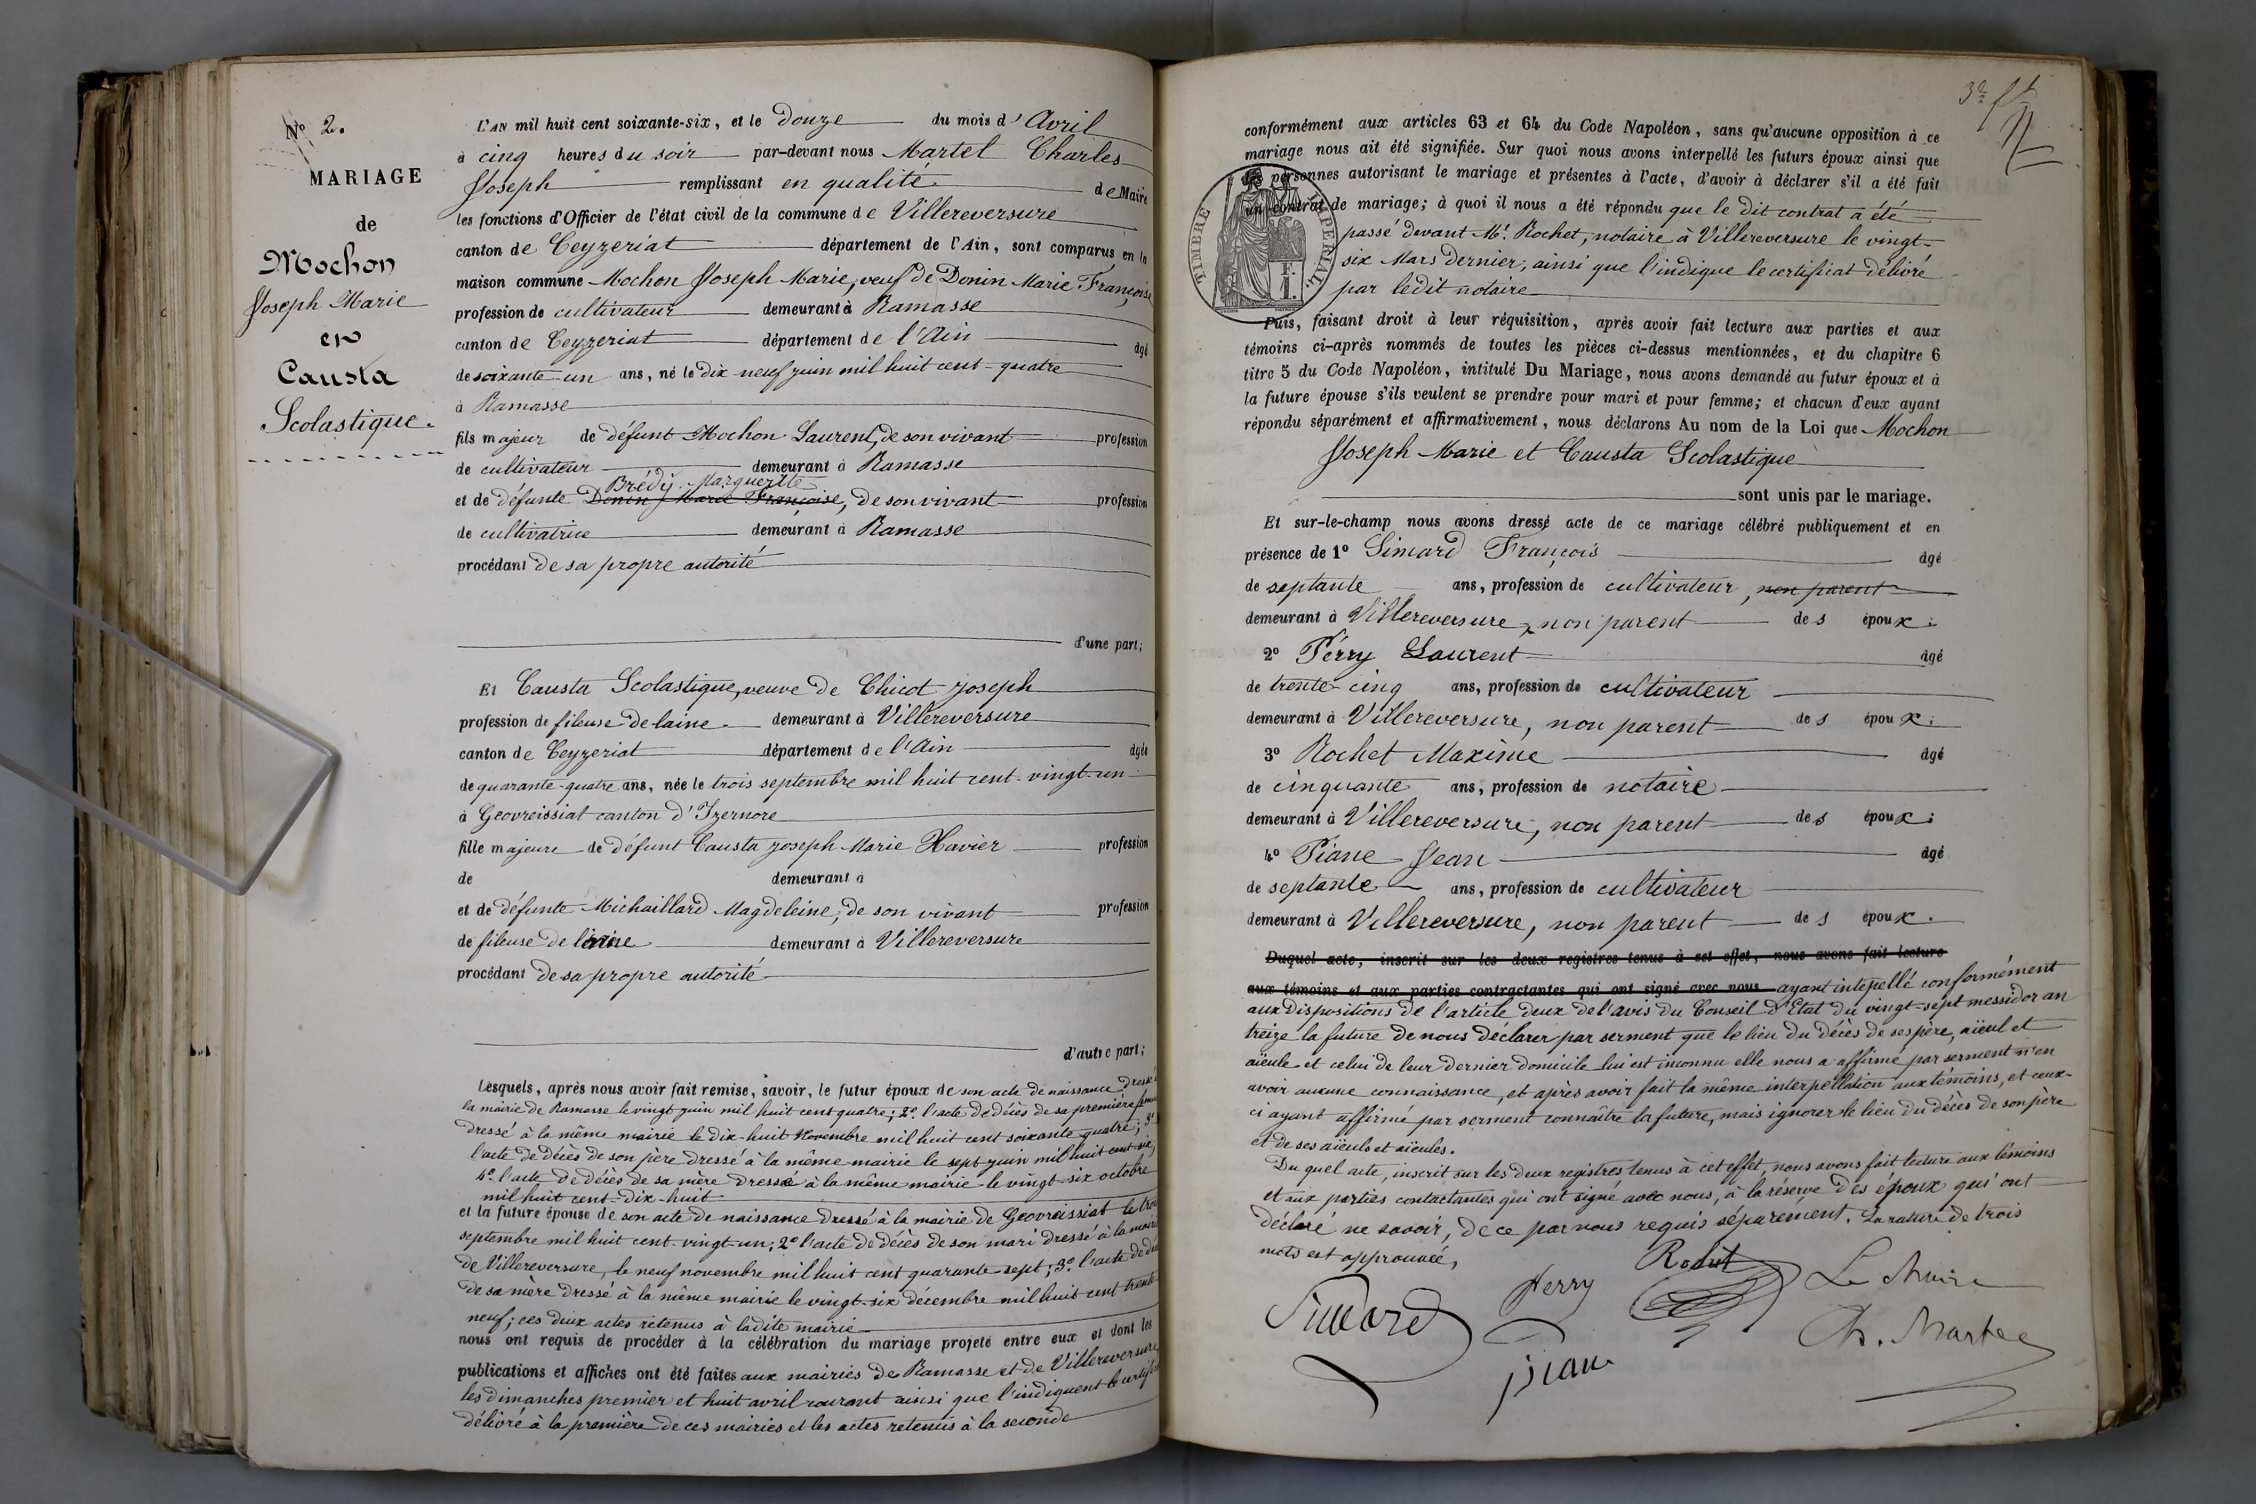 N° 2.
MARIAGE
de
Mochon
Joseph Marie
et
Causta
Scolastique.
L'AN mil huit cent soixante-six, et le douze du mois d'Avril
à cinq heures du soir par-devant nous Martel Charles
Joseph remplissant en qualité de Maire
les fonctions d'Officier de l'état civil de la commune de Villereversure
canton de Ceyzeriat département de l'Ain, sont comparus en la
maison commune Mochon Joseph Marie, veuf de Donin Marie Françoise
profession de cultivateur demeurant à Ramasse
canton de Ceyzeriat département de l'Ain âgé
de soixante-un ans, né le dix neuf juin mil huit cent-quatre
à Ramasse
fils majeur de défunt Mochon Laurent, de son vivant profession
de cultivateur demeurant à Ramasse
Brédy Marguerite
et de défunte Donin Marie Françoise, de son vivant profession
de cultivatrice demeurant à Ramasse
procédant de sa propre autorité
d'une part;
Et Causta Scolastique, veuve de Chicot Joseph
profession de fileuse de laine demeurant à Villereversure
canton de Ceyzeriat département de l'Ain âgée
de quarante-quatre ans, née le trois septembre mil huit cent-vingt-un
à Geovreissiat canton d'Izernore
fille majeure de défunt Causta Joseph Marie Xavier profession
de demeurant à
et de défunte Michaillard Magdeleine, de son vivant profession
de fileuse de laine demeurant à Villereversure
procédant de sa propre autorité
d'autre part;
Lesquels, après nous avoir fait remise, savoir, le futur époux de son acte de naissance dressé
la mairie de Ramasse le vingt juin mil huit cent quatre; 2° l'acte de décès de sa première
dressé à la même mairie le dix-huit Novembre mil huit cent soixante quatre; 3°
l'acte de décès de son père dressé à la même mairie le sept juin mil huit cent six;
4° l'acte de décès de sa mère dressé à la même mairie le vingt-six octobre
mil huit cent-dix-huit
et la future épouse de son acte de naissance dressé à la mairie de Geovreissiat le trois
septembre mil huit cent vingt-un; 2° l'acte de décès de son mari dressé à la mairie
de Villereversure, le neuf novembre mil huit cent quarante-sept; 3° l'acte de décès
de sa mère dressé à la même mairie le vingt-six décembre mil huit cent trente
neuf; ces deux actes retenus à ladite mairie
nous ont requis de procéder à la célébration du mariage projeté entre eux et dont les
publications et affiches ont été faites aux mairies de Ramasse et de Villereversure
les dimanches premier et huit avril courant ainsi que l'indiquent le certificat
délivré à la première de ces mairies et les actes retenus à la seconde
conformément aux articles 63 et 64 du Code Napoléon, sans qu'aucune opposition à ce
mariage nous ait été signifiée. Sur quoi nous avons interpellé les futurs époux ainsi que
les personnes autorisant le mariage et présentes à l'acte, d'avoir à déclarer s'il a été fait
un contrat de mariage; à quoi il nous a été répondu que le dit contrat a été
passé devant Me. Rochet, notaire à Villereversure le vingt-
six Mars dernier, ainsi que l'indique le certificat délivré
par ledit notaire
TIMBRE IMPERIAL.
F. 1.
Puis, faisant droit à leur réquisition, après avoir fait lecture aux parties et aux
témoins ci-après nommés de toutes les pièces ci-dessus mentionnées, et du chapitre 6
titre 5 du Code Napoléon, intitulé Du Mariage, nous avons demandé au futur époux et à
la future épouse s'ils veulent se prendre pour mari et pour femme; et chacun d'eux ayant
répondu séparément et affirmativement, nous déclarons Au nom de la Loi que Mochon
Joseph Marie et Causta Scolastique
sont unis par le mariage.
Et sur-le-champ nous avons dressé acte de ce mariage célébré publiquement et en
présence de 1° Simard François âgé
de septante ans, profession de cultivateur, non parent
demeurant à Villereversure, non parent des époux;
2° Perry Laurent âgé
de trente-cinq ans, profession de cultivateur
demeurant à Villereversure, non parent des époux;
3° Rochet Maxime âgé
de cinquante ans, profession de notaire
demeurant à Villereversure, non parent des époux;
4° Piane Jean âgé
de septante ans, profession de cultivateur
demeurant à Villereversure, non parent des époux.
Duquel acte, inscrit sur les deux registres tenus à cet effet, nous avons fait lecture
aux témoins et aux parties contractantes qui ont signé avec nous ayant intepellé conformément
aux dispositions de l'article deux de l'avis du Conseil d'Etat du vingt-sept messidor an
treize la future de nous déclarer par serment que le lieu du décès de ses père, aïeul et
aïeule et celui de leur dernier domicile lui est inconnu elle nous a affirmé par serment n'en
avoir aucune connaissance, et après avoir fait la même interpellation aux témoins, et ceux-
ci ayant affirmé par serment connaître la future, mais ignorer le lieu du décès de son père
et de ses aïeuls et aïeules.
Du quel acte, inscrit sur les deux registres tenus à cet effet, nous avons fait lecture aux témoins
et aux parties contactantes qui ont signé avec nous, à la réserve des époux qui ont
déclaré ne savoir, de ce par nous requis séparément. La rature de trois
mots est approuvée,
Simard Perry Rochet Le Maire
Piane Ch. Martel